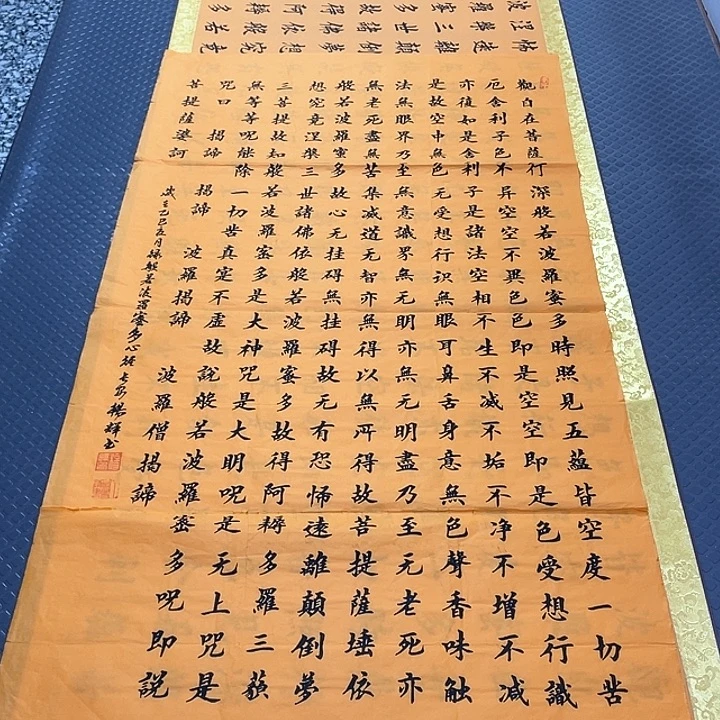 觀自在菩薩行深般若波羅蜜多時照見五蘊皆空度一切苦
厄舍利子色不異空空不異色色即是空空即是色受想行識
亦復如是舍利子是諸法空相不生不减不垢不净不增不减
是故空中無色无受想行识無眼耳鼻舌身意無色聲香味触
法無眼界乃至無意識界無无明亦無无明盡乃至无老死亦
無老死盡無苦集减道无智亦無得以無所得故菩提薩埵依
般若波羅蜜多故心无挂碍無挂碍故无有恐怖遠離顛倒夢
想究竟涅槃三世諸佛依般若波羅蜜多故得阿耨多羅三藐
三菩提故知般若波羅蜜多是大神咒是大明呪是无上咒是
無等等呪能除一切苦真寔不虛故說般若波羅蜜多呪即説
咒曰 揭諦 揭諦 波羅揭諦 波羅僧揭諦
菩提薩婆訶
乙巳五月録般若波羅蜜多心經 楊輝書